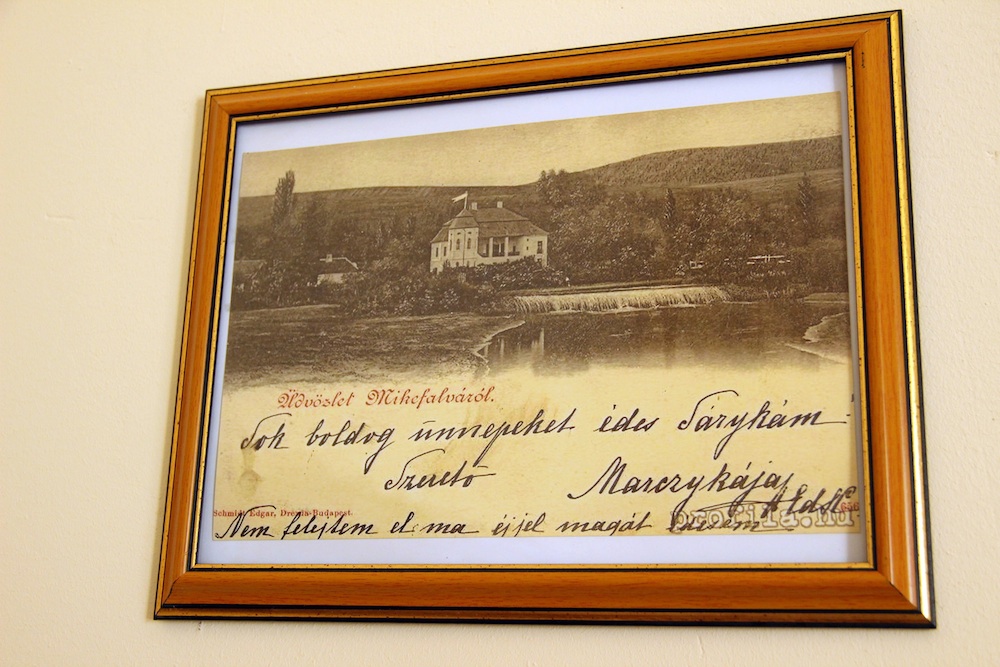 Üdvözlet Mikefalváról.
Sok boldog ünnepeket édes Sárykám
Szerető Marczykája
Schmidt Edgar, Drezda-Budapest.
Nem felejtem el ma éjjel magát
profila.hu